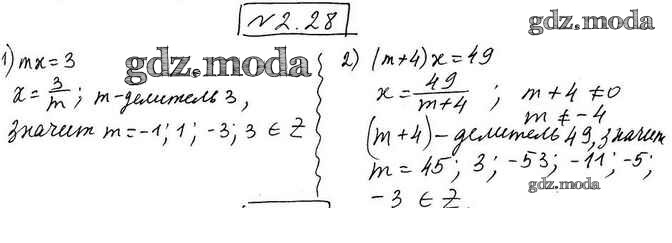 №2.28
1) mx=3
x=3/m; m-делитель 3,
значит m=-1; 1; -3; 3 ∈ Z
2) (m+4)x=49
x=49/(m+4); m+4≠0
m≠-4
(m+4)-делитель 49, значит
m=45; 3; -53; -11; -5;
-3 ∈ Z.
gdz.moda
gdz.moda
gdz.moda